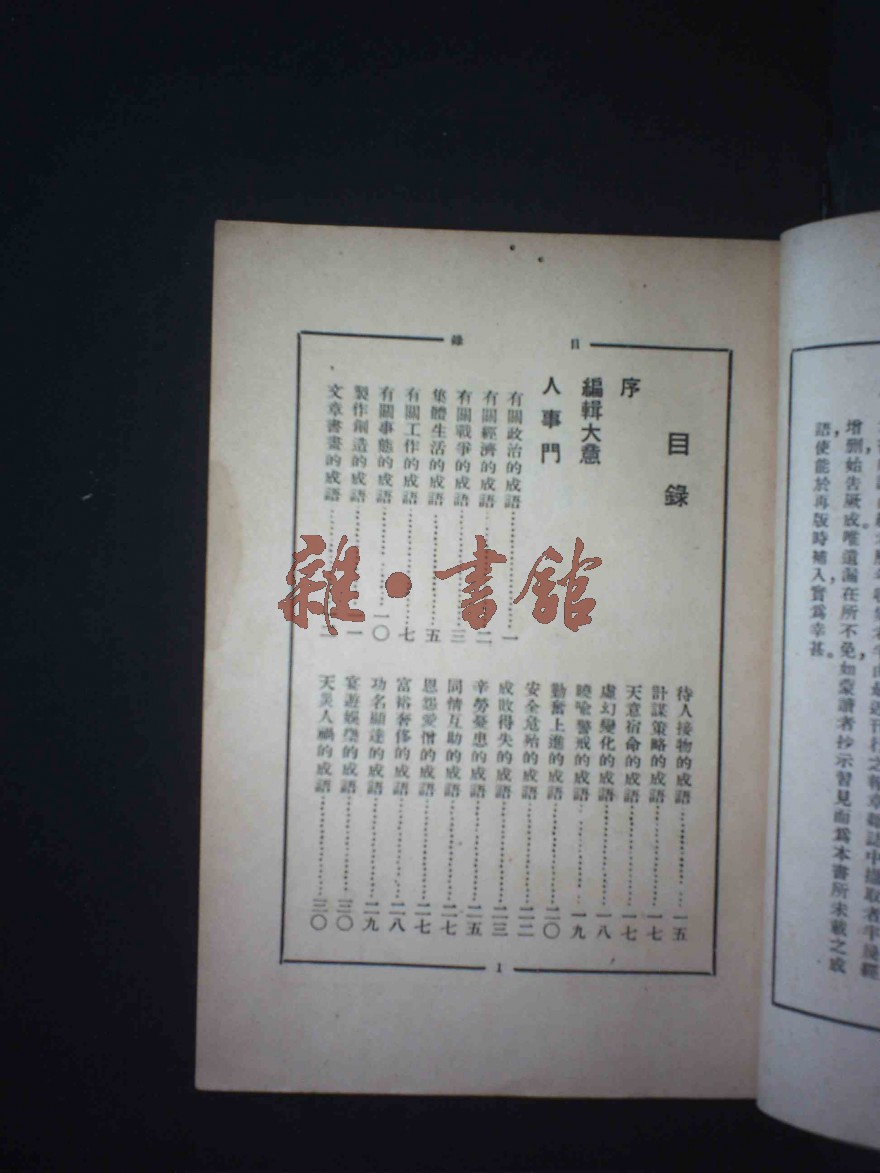 增刪始告厥成唯遺漏在所不免如蒙讀者抄示習見而為本書所未載之成
語使能於再版時補入實為幸甚。
目錄
目錄
序
編輯大意
人事門
有關政治的成語……一
有關經濟的成語……二
有關戰爭的成語……三
集體生活的成語……五
有關工作的成語……七
有關事態的成語……一〇
製作創造的成語
文章書畫的成語
待人接物的成語……一五
計謀策略的成語……一七
天意宿命的成語……一七
虛幻變化的成語……一八
曉喻警戒的成語……一九
勤奮上進的成語……二〇
安全危殆的成語……二二
成敗得失的成語……二三
辛勞憂患的成語……二五
同情互助的成語……二七
恩怨愛憎的成語……二七
富裕奢侈的成語……二八
功名顯達的成語……二九
宴遊娛樂的成語……三〇
天災人禍的成語……三〇
1
雜·書館